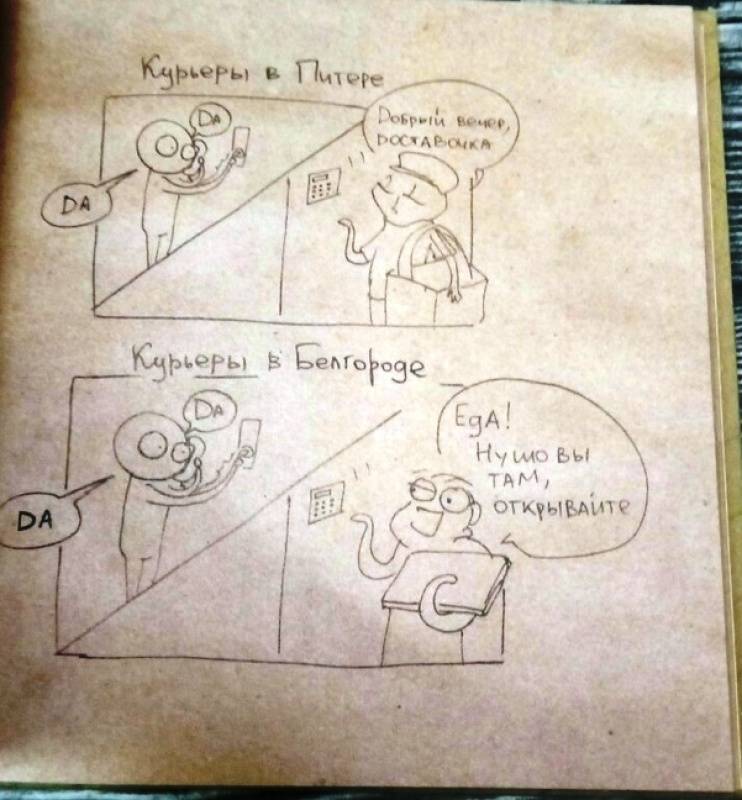 Курьеры в Питере
DA
DA
Dобрый вечер,
DОСТАВОЧКА
Курьеры в Белгороде
DA
DA
ЕдА!
Ну шо вы
там,
открывайте